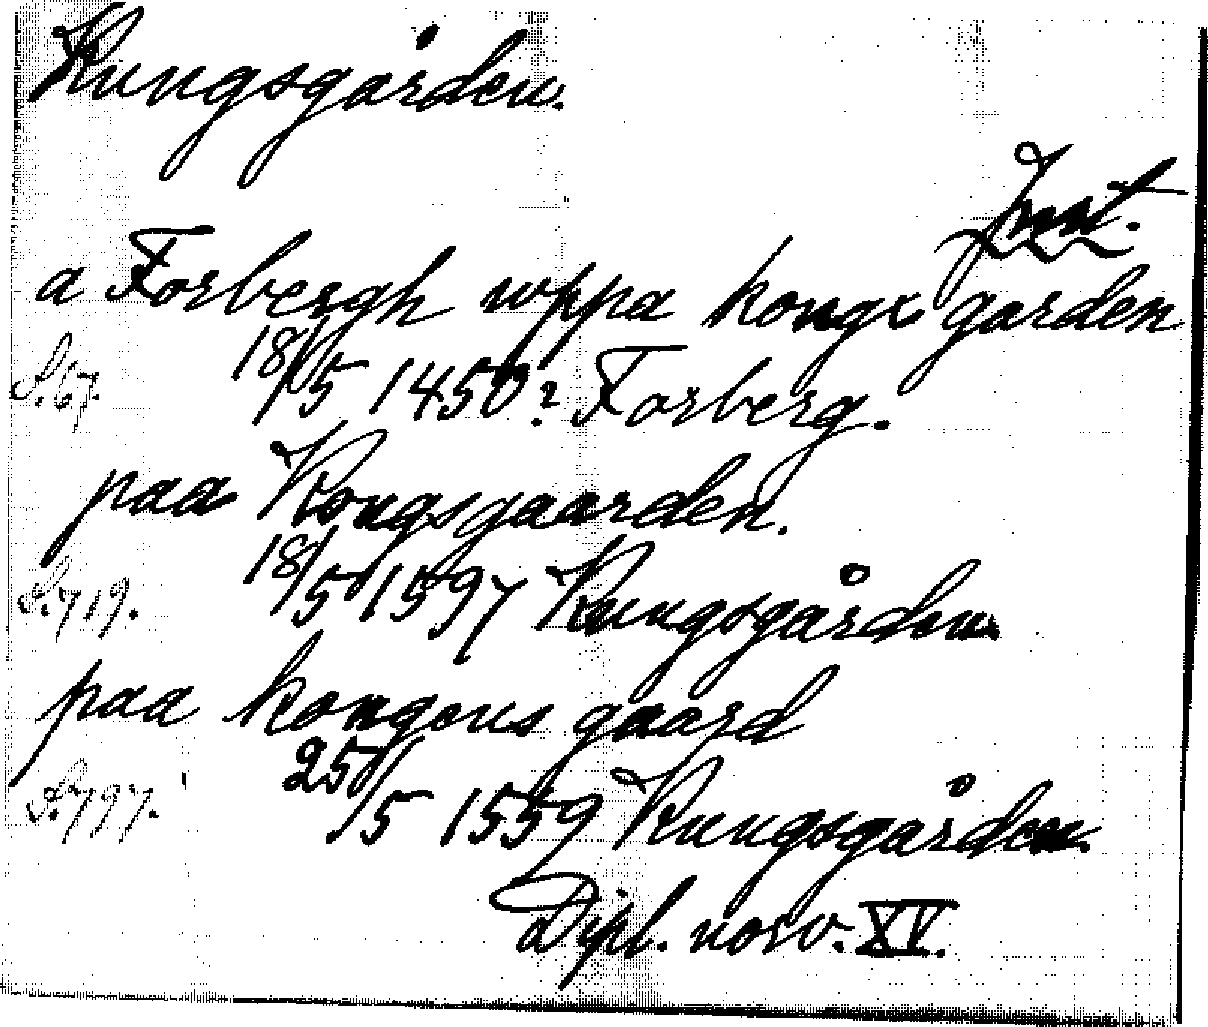 Kungsgården.
Jmt.
a Forbergh uppa kongx garden
S. 67. 18/5 1450? Forberg.
paa Kongsgaarden.
S. 719. 18/5 1597 Kungsgården.
paa kongens gaard
S. 797. 25/5 1559 Kungsgården.
Dipl. norv. XV.